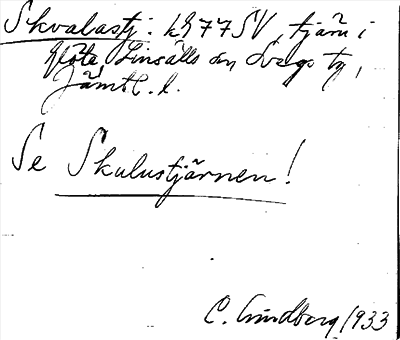 Skvalastj: kg 77 SV, tjärn i
Glöte Linsälls sn Svegs tg,
Jämtl. l.
Se Skulustjärnen!
C. Lindberg 1933